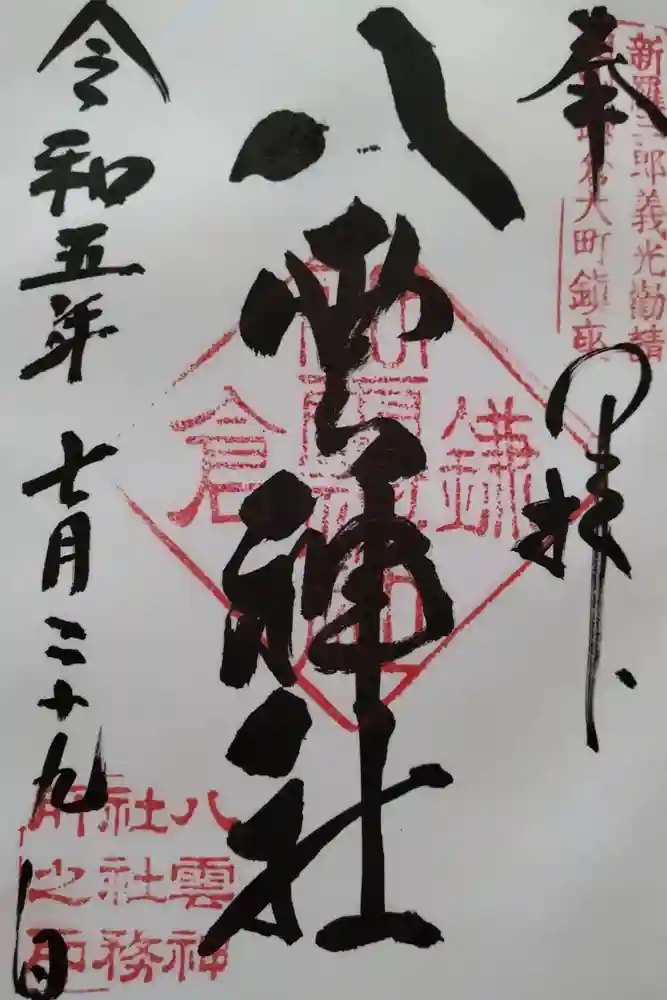 奉拝
新羅三郎義光勧請
倉大町鎮座
八雲神社
鎌
倉
令和五年七月二十九日
八雲神
社社務
所之印